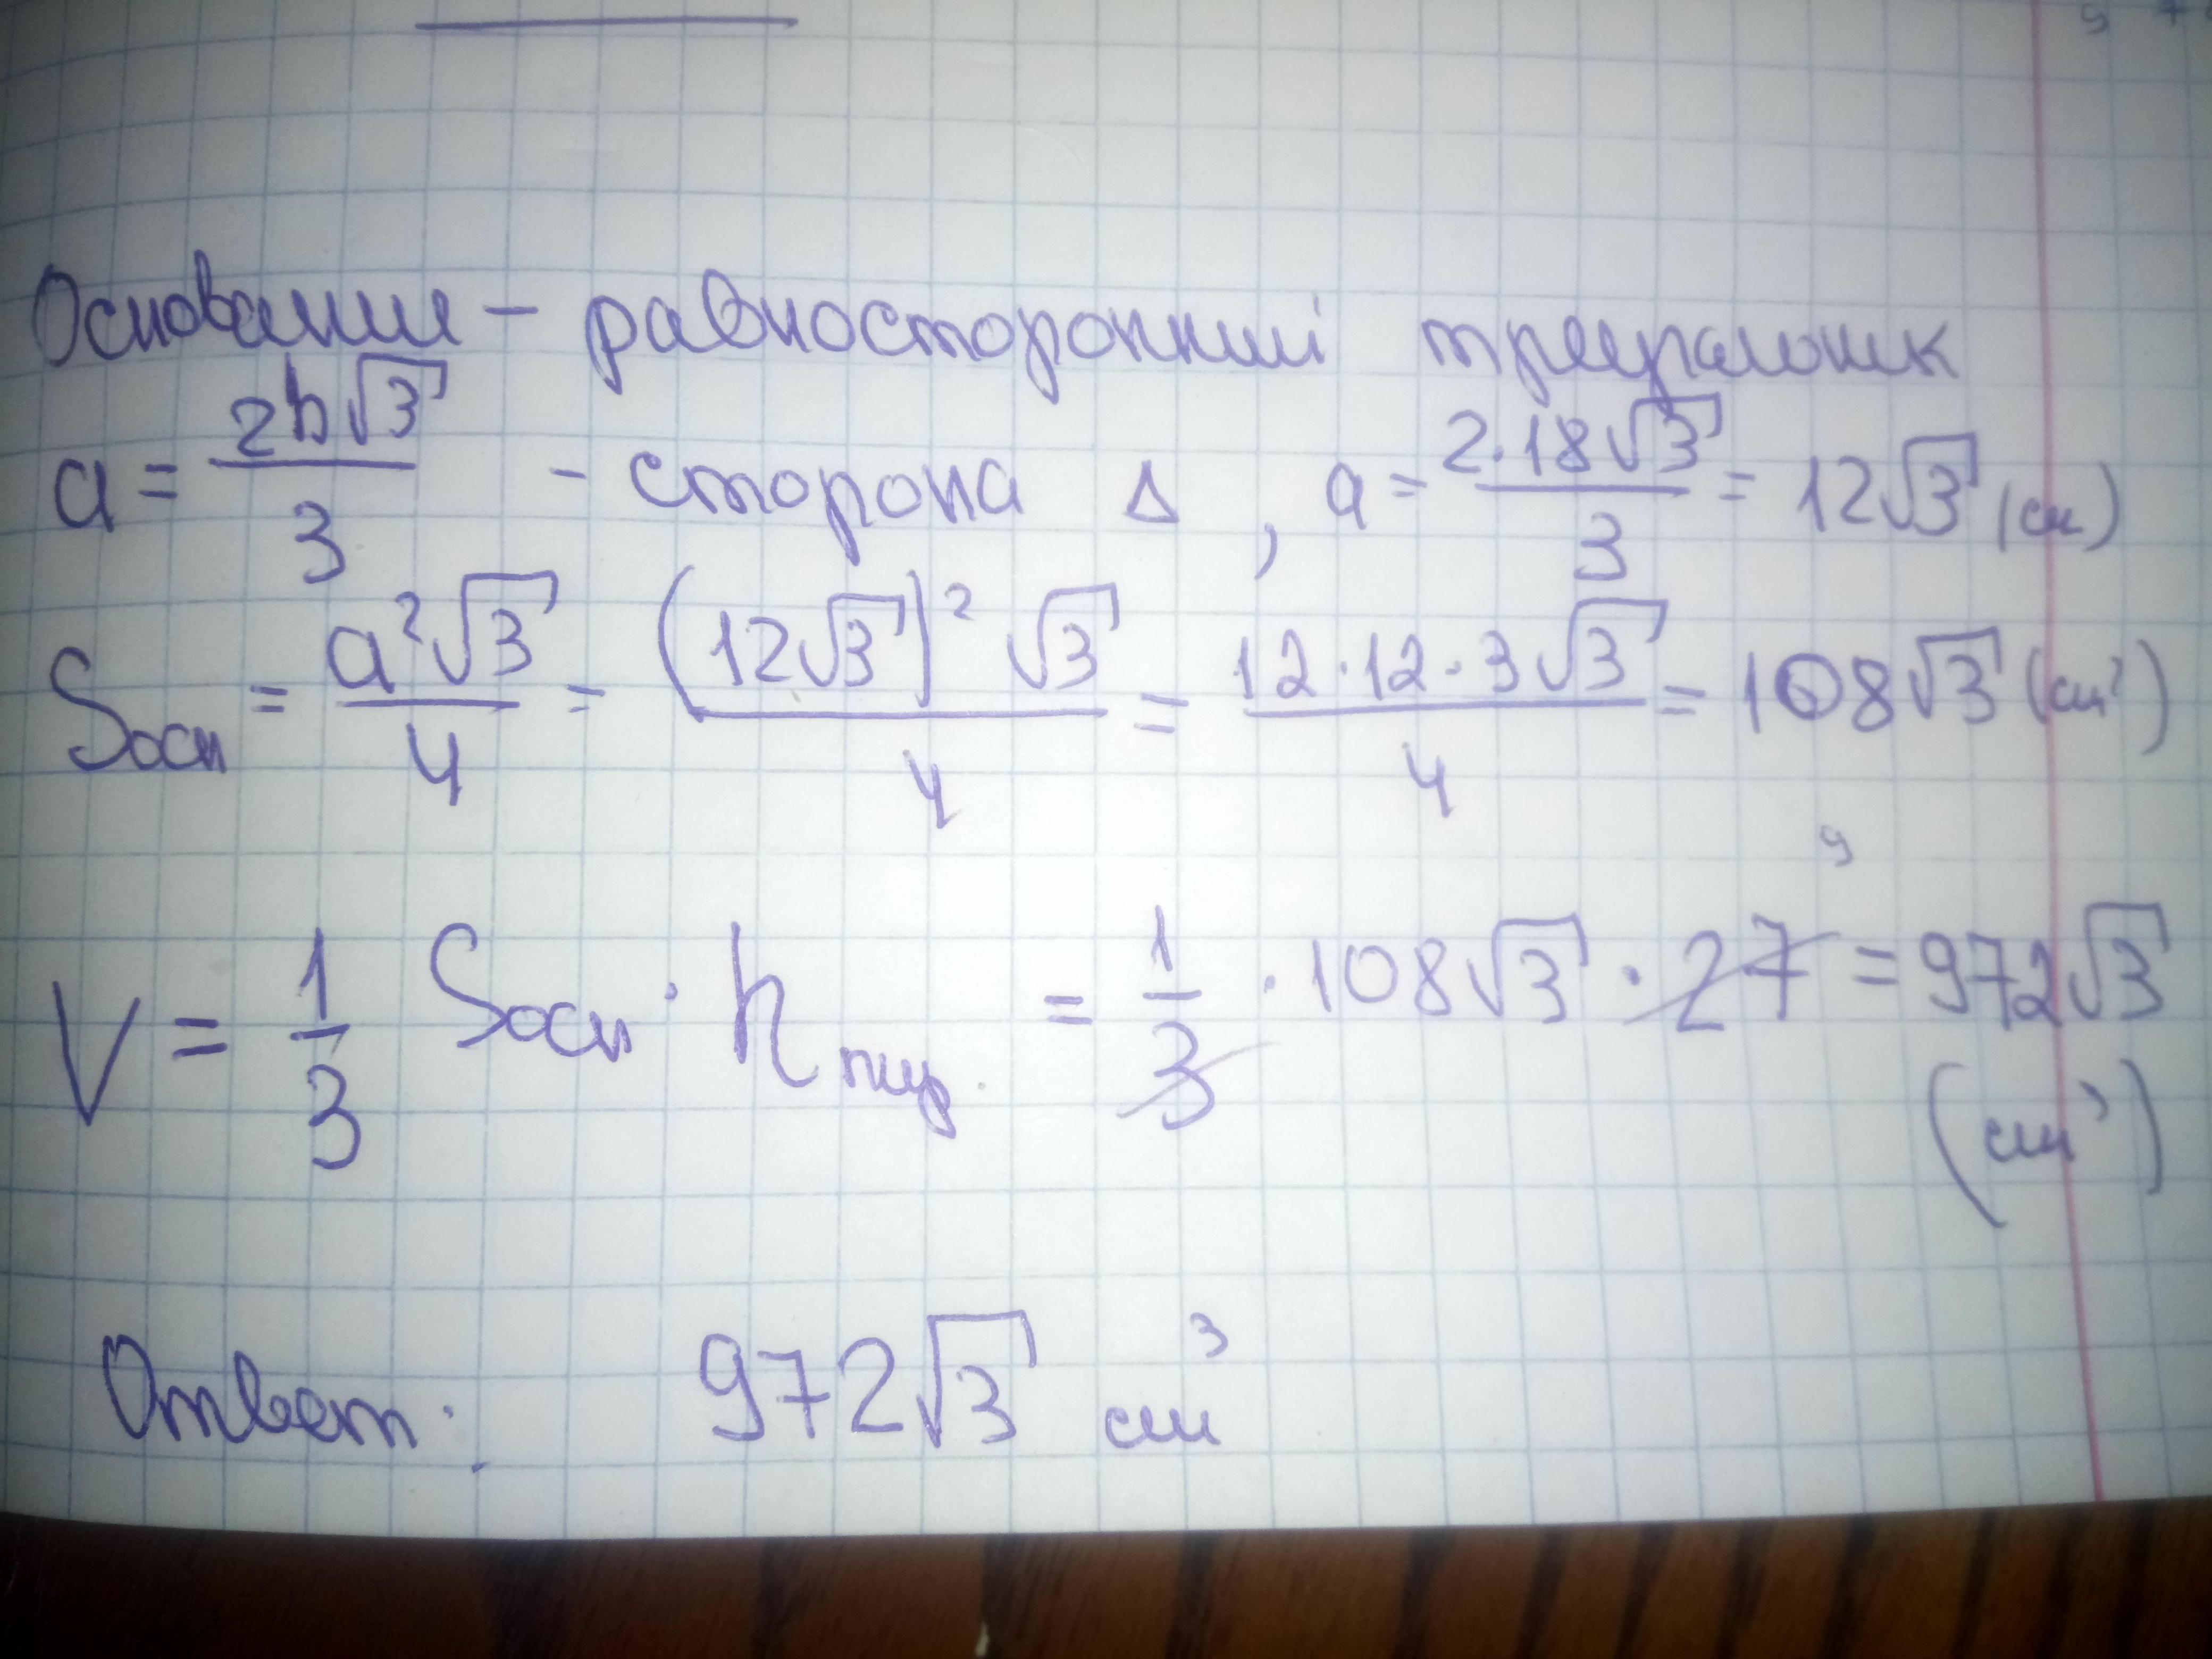 Основание - равносторонний треугольник
a = 2h√3/3 - сторона Δ , a = 2·18√3/3 = 12√3 (см)
Sосн = a²√3/4 = (12√3)²√3/4 = 12·12·3√3/4 = 108√3 (см²)
V = 1/3 Sосн · h пир. = 1/3 · 108√3 · 27 = 972√3
9
(см³)
Ответ: 972√3 см³